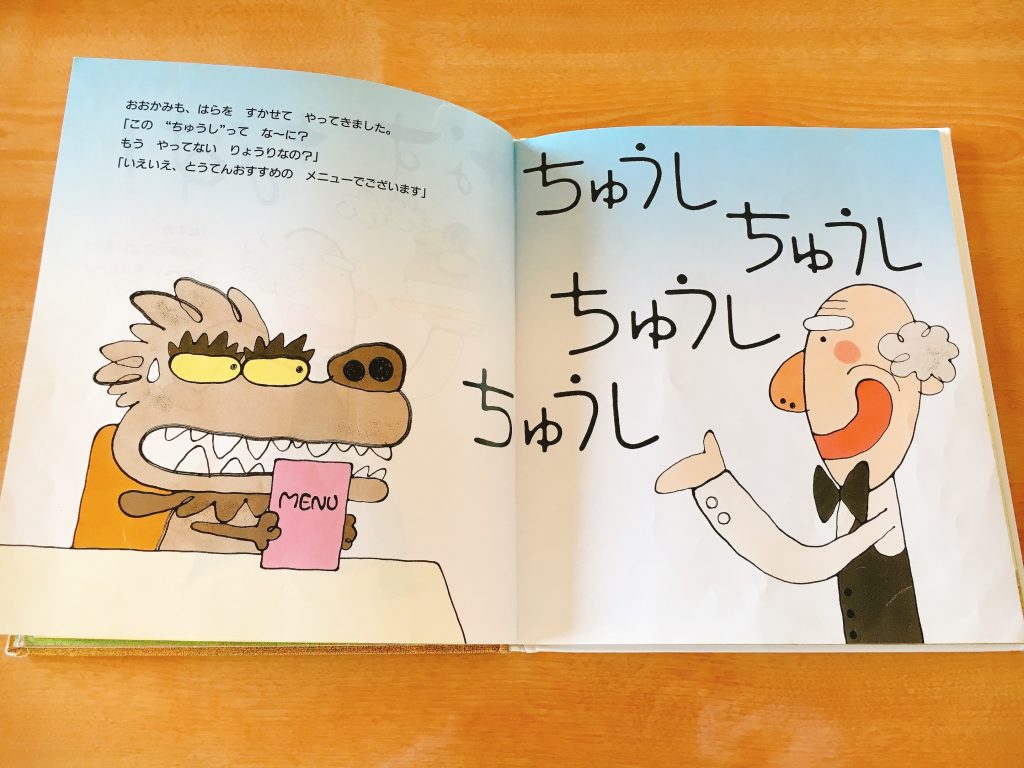 おおかみも、はらを　すかせて　やってきました。
「この　“ちゅうし”って　な〜に？
もう　やってない　りょうりなの？」
「いえいえ、とうてんおすすめの　メニューでございます」
MENU
ちゅうし
ちゅうし
ちゅうし
ちゅうし